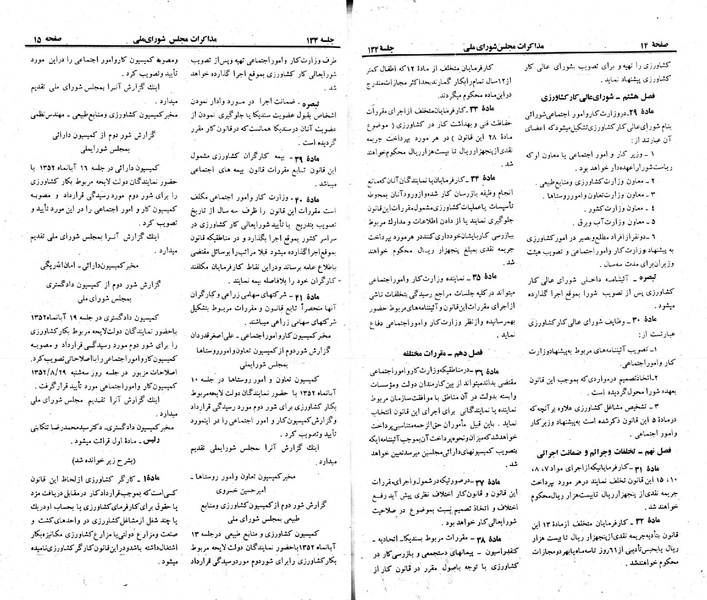 صفحه ۱۲ مذاکرات مجلس شورای ملی جلسه ۱۳۲
کشاورزی را تهیه و برای تصویب بشورای عالی کار
کشاورزی پیشنهاد نماید.
فصل هشتم - شورای عالی کار کشاورزی
مادهٔ ۲۹ـ در وزارت کار و امور اجتماعی شورائی
بنام شورای عالی کار کشاورزی تشکیل میشود که اعضای
آن عبارتند از:
۱ - وزیر کار و امور اجتماعی یا معاون او که
ریاست شورا را عهده‌دار خواهد بود.
۲ - معاون وزارت کشاورزی و منابع طبیعی.
۳ - معاون وزارت تعاون و امور روستاها.
۴ - معاون وزارت کشور.
۵ - معاون وزارت آب و برق.
۶ - دو نفر از افراد مطلع و بصیر در امور کشاورزی
به پیشنهاد وزارت کار و امور اجتماعی و تصویب هیئت
وزیران برای مدت سه سال.
تبصره - آئیننامه داخلی شورای عالی کار
کشاورزی پس از تصویب شورا بموقع اجرا گذارده
میشود.
مادهٔ ۳۰ - وظایف شورای عالی کار کشاورزی
عبارتست از:
۱ـ تصویب آئیننامه‌های مربوط به پیشنهاد وزارت
کار و امور اجتماعی.
۲ـ اتخاذ تصمیم در مواردی که بموجب این قانون
بعهده شورا محول گردیده است.
۳ - تشخیص مشاغل کشاورزی علاوه بر آنچه که
در مادهٔ ۵ این قانون ذکر شده است به پیشنهاد وزیر کار
و امور اجتماعی.
فصل نهم - تخلفات و جرائم و ضمانت اجرائی
مادهٔ ۳۱ - کارفرمایانیکه از اجرای مواد ۷، ۸،
۱۰، ۱۵ این قانون تخلف نمایند در هر مورد پرداخت
جریمه نقدی از پنجهزار ریال تا بیست هزار ریال محکوم
خواهند شد.
مادهٔ ۳۲ - کارفرمایان متخلف از مادهٔ ۱۳ این
قانون بتأدیه جریمه نقدی از پنجهزار ریال تا بیست هزار
ریال یا بحبس تأدیبی از ۶۱ روز تا سه ماه یا بهر دو مجازات
محکوم خواهند شد.
کارفرمایان متخلف از مادهٔ ۱۲ که اطفال کمتر
از ۱۲ سال تمام را بکار گمارند بحداکثر مجازات مندرج
در این ماده محکوم میگردند.
مادهٔ ۳۳ - کارفرمایان متخلف از اجرای مقررات
حفاظت فنی و بهداشت کار در کشاورزی (موضوع
مادهٔ ۲۸ این قانون) در هر مورد بپرداخت جریمه
نقدی از پنجهزار ریال تا بیست هزار ریال محکوم خواهند
شد.
مادهٔ ۳۴ - کارفرمایان یا نمایندگان آنان که مانع
انجام وظیفه بازرسان کار شده و از ورود آنان بمحوطه
تأسیسات یا عملیات کشاورزی مشمول مقررات این قانون
جلوگیری نمایند یا از دادن اطلاعات و مدارک مربوط
ببازرسی کار بایشان خودداری کنند در هر مورد پرداخت
جریمه نقدی بمبلغ پنجهزار ریال محکوم خواهند
شد.
مادهٔ ۳۵ - نماینده وزارت کار و امور اجتماعی
میتواند در کلیه جلسات مراجع رسیدگی بتخلفات ناشی
از اجرای مقررات این قانون و آئیننامه‌های مربوط حضور
بهم رسانیده و از نظر وزارت کار و امور اجتماعی دفاع
نماید.
فصل دهم - مقررات مختلفه
مادهٔ ۳۶ - در مناطقیکه وزارت کار و امور اجتماعی
مقتضی بداند میتواند از بین کارمندان دولت و مؤسسات
وابسته بدولت در آن مناطق با موافقت سازمان مربوط
نماینده یا نمایندگانی برای اجرای این قانون انتخاب
نماید. باین قبیل مأموران حق‌الزحمه متناسبی پرداخت
خواهد شد که میزان و نحوه پرداخت آن بموجب آئیننامه ایکه
بتصویب کمیسیونهای دارائی مجلسین میرسد تعیین خواهد
شد.
مادهٔ ۳۷ - در صورتیکه در شمول و اجرای مقررات
این قانون و قانون کار اختلاف نظری پیش آید رفع
اختلاف و اتخاذ تصمیم نسبت بموضوع در صلاحیت
شورایعالی کار خواهد بود.
مادهٔ ۳۸ - مقررات مربوط بسندیکا - اتحادیه -
کنفدراسیون - پیمانهای دستجمعی و بازرسی کار در
کشاورزی با توجه باصول مقرر در قانون کار از
جلسه ۱۳۲ مذاکرات مجلس شورای ملی صفحه ۱۵
طرف وزارت کار و امور اجتماعی تهیه و پس از تصویب
شورایعالی کار کشاورزی بموقع اجرا گذارده خواهد
شد.
تبصره - ضمانت اجرا در مورد وادار نمودن
اشخاص بقبول عضویت سندیکا یا جلوگیری نمودن از
عضویت آنان در سندیکا همانست که در قانون کار مقرر
گردیده است.
مادهٔ ۳۹ - بیمه کارگران کشاورزی مشمول
این قانون تابع مقررات قانون بیمه های اجتماعی
میباشد.
مادهٔ ۴۰ - وزارت کار و امور اجتماعی مکلف
است مقررات این قانون را ظرف سه سال از تاریخ
تصویب بتدریج با تأیید شورایعالی کار کشاورزی در
سراسر کشور بموقع اجرا بگذارد و در مناطقیکه قانون
بموقع اجرا گذارده میشود قبلا مراتب را بوسائل مقتضی
باطلاع عامه برساند و در این نقاط کارفرمایان مکلفند
کارگران خود را بلافاصله بیمه نمایند.
مادهٔ ۴۱ - شرکتهای سهامی زراعی و کارگران
آنها منحصراً تابع قانون و مقررات مربوط بتشکیل
شرکتهای سهامی زراعی میباشند.
مخبر کمیسیون کار و امور اجتماعی - علی اصغر قدردان
گزارش شور دوم از کمیسیون تعاون و امور روستاها
بمجلس شورایملی
کمیسیون تعاون و امور روستاها در جلسه ۱۰
آبانماه ۱۳۵۲ با حضور نمایندگان دولت لایحه مربوط
بکار کشاورزی برای شور دوم مورد رسیدگی قرارداد
و گزارش کمیسیون کار و امور اجتماعی را در اینمورد
تأیید و تصویب کرد.
اینک گزارش آنرا بمجلس شورایملی تقدیم
میدارد.
مخبر کمیسیون تعاون و امور روستاها -
امیرحسین خسروی
گزارش شور دوم از کمیسیون کشاورزی و منابع
طبیعی بمجلس شورای ملی
کمیسیون کشاورزی و منابع طبیعی در جلسه ۱۳
آبانماه ۱۳۵۲ با حضور نمایندگان دولت لایحه مربوط
بکار کشاورزی را برای شور دوم مورد رسیدگی قرارداد
ومصوبه کمیسیون کار و امور اجتماعی را در این مورد
تأیید و تصویب کرد.
اینک گزارش آنرا بمجلس شورای ملی تقدیم
میدارد.
مخبر کمیسیون کشاورزی و منابع طبیعی - مهندس نظمی
گزارش شور دوم از کمیسیون دارائی
بمجلس شورایملی
کمیسیون دارائی در جلسه ۱۶ آبانماه ۱۳۵۲
با حضور نمایندگان دولت لایحه مربوط بکار کشاورزی
را برای شور دوم مورد رسیدگی قرارداد و مصوبه
کمیسیون کار و امور اجتماعی را در این مورد تأیید و
تصویب کرد.
اینک گزارش آنرا بمجلس شورای ملی تقدیم
میدارد.
مخبر کمیسیون دارائی - امان اله ریگی
گزارش شور دوم از کمیسیون دادگستری
بمجلس شورای ملی
کمیسیون دادگستری در جلسه ۱۹ آبانماه ۱۳۵۲
با حضور نمایندگان دولت لایحه مربوط بکار کشاورزی
را برای شور دوم مورد رسیدگی قرارداد و مصوبه
کمیسیون کار و امور اجتماعی را با اصلاحاتی تصویب کرد.
اصلاحات مزبور در جلسه روز سه‌شنبه ۱۳۵۲/۸/۲۹
کمیسیون کار و امور اجتماعی مورد تأیید قرار گرفت.
اینک گزارش آنرا تقدیم مجلس شورای ملی
میدارد.
مخبر کمیسیون دادگستری. دکتر سید محمدرضا تنکابنی
رئیس - مادهٔ اول قرائت میشود.
(بشرح زیر خوانده شد)
مادهٔ ۱ - کارگر کشاورزی از لحاظ این قانون
کسی است که بموجب قرارداد کار در مقابل دریافت مزد
یا حقوق برای کارفرمای کشاورزی یا بحساب او در یک
یا چند شغل از مشاغل کشاورزی در واحدهای کشت و
صنعت و مزارع دولتی یا مزارع کشاورزی مکانیزه بکار
اشتغال داشته باشد و در این قانون کارگر کشاورزی نامیده
میشود.